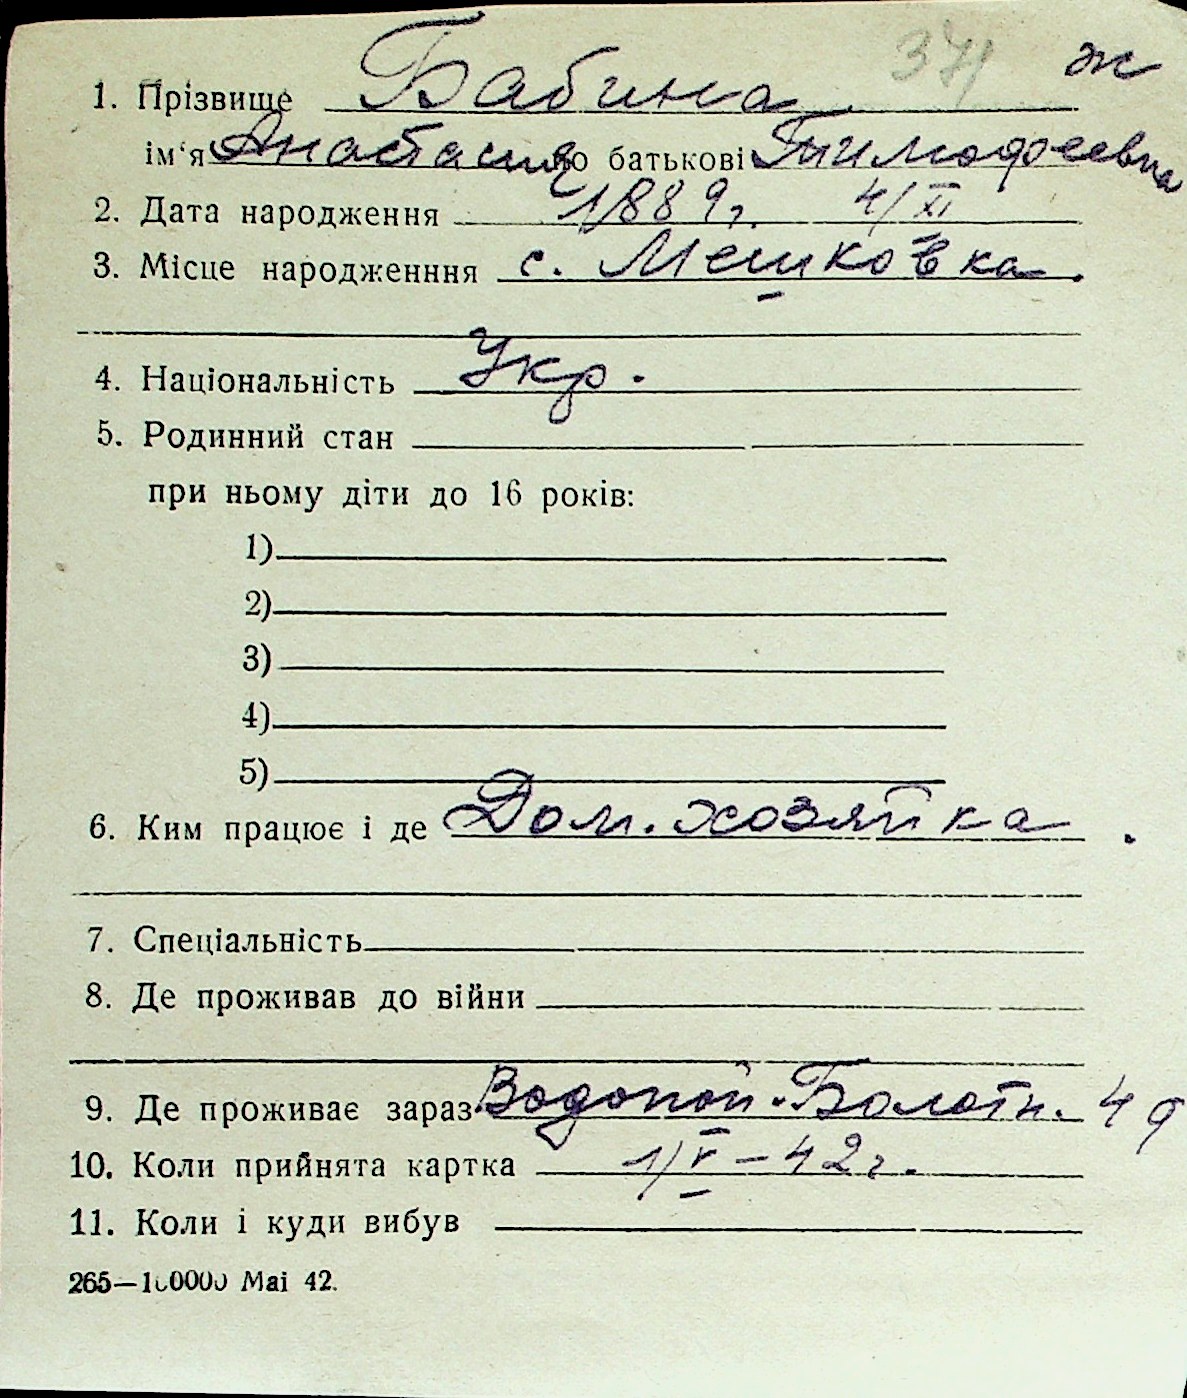 371 ж
1. Прізвище Бабина
ім‘я Анастасия по батькові Тимофеевна
2. Дата народження 1889 г. 4/XI
3. Місце народженння с. Мешковка.
4. Національність Укр.
5. Родинний стан
при ньому діти до 16 років:
1)
2)
3)
4)
5)
6. Ким працює і де Дом. хозяйка.
7. Спеціальність
8. Де проживав до війни
9. Де проживає зараз Водопой. Болотн. 49
10. Коли прийнята картка 1/V – 42 г.
11. Коли і куди вибув
265—100000 Mai 42.